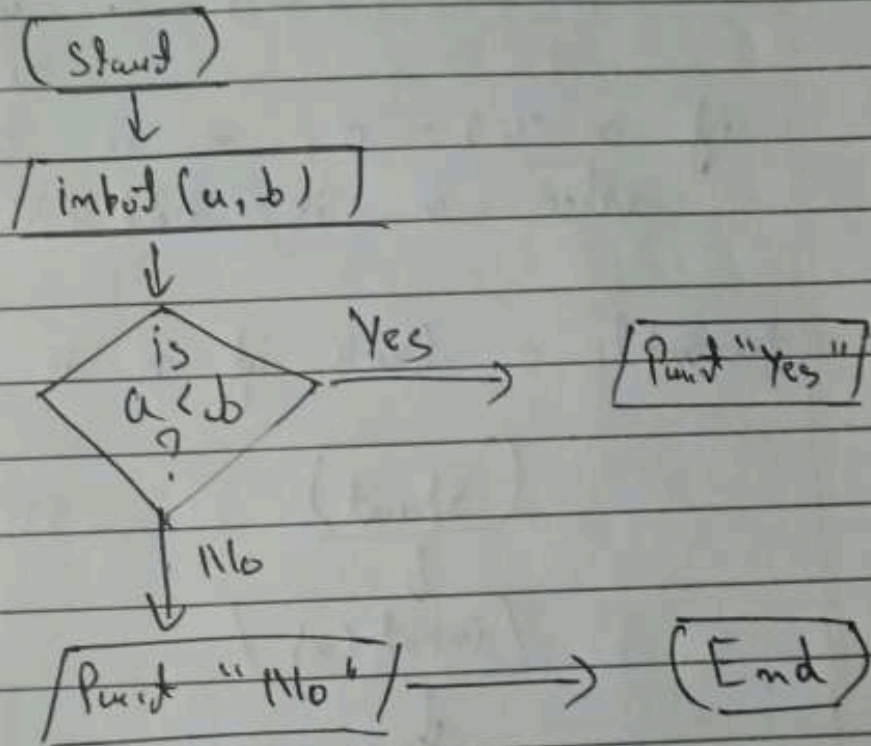 Start
input (a, b)
is
a < b
?
Yes
Print "Yes"
No
Print "No"
End